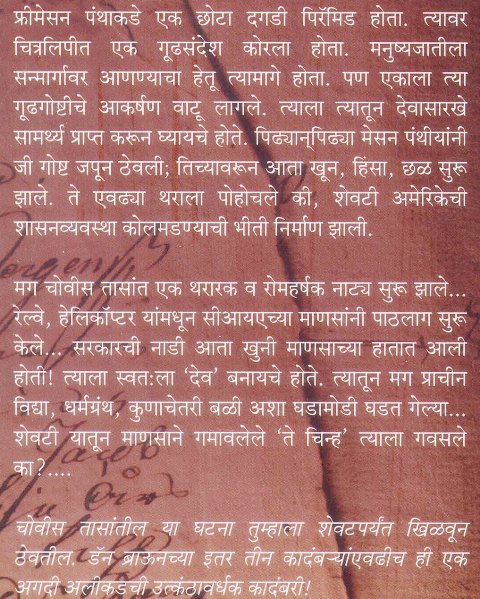 फ्रीमेसन पंथाकडे एक छोटा दगडी पिरॅमिड होता. त्यावर
चित्रलिपीत एक गूढसंदेश कोरला होता. मनुष्यजातीला
सन्मार्गावर आणण्याचा हेतू त्यामागे होता. पण एकाला त्या
गूढगोष्टीचे आकर्षण वाटू लागले. त्याला त्यातून देवासारखे
सामर्थ्य प्राप्त करून घ्यायचे होते. पिढ्यान्‌पिढ्या मेसन पंथीयांनी
जी गोष्ट जपून ठेवली; तिच्यावरून आता खून, हिंसा, छळ सुरू
झाले. ते एवढ्या थराला पोहोचले की, शेवटी अमेरिकेची
शासनव्यवस्था कोलमडण्याची भीती निर्माण झाली.
मग चोवीस तासांत एक थरारक व रोमहर्षक नाट्य सुरू झाले...
रेल्वे, हेलिकॉप्टर यांमधून सीआयएच्या माणसांनी पाठलाग सुरू
केले... सरकारची नाडी आता खुनी माणसाच्या हातात आली
होती! त्याला स्वत:ला ‘देव’ बनायचे होते. त्यातून मग प्राचीन
विद्या, धर्मग्रंथ, कुणाचेतरी बळी अशा घडामोडी घडत गेल्या...
शेवटी यातून माणसाने गमावलेले ‘ते चिन्ह’ त्याला गवसले
का?....
चोवीस तासांतील या घटना तुम्हाला शेवटपर्यंत खिळवून
ठेवतील. डॅन ब्राऊनच्या इतर तीन कादंबऱ्यांएवढीच ही एक
अगदी अलीकडची उत्कंठावर्धक कादंबरी!